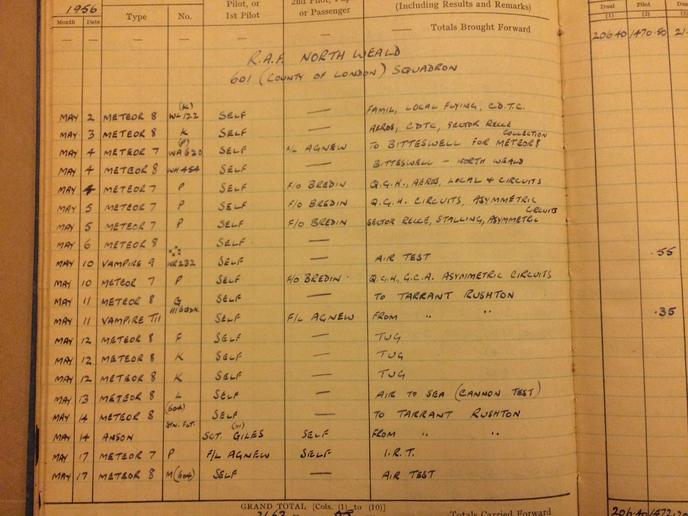 1956 Type No. Pilot, or 2nd Pilot, (Including Results and Remarks) Dual Pilot
Month Date 1st Pilot or Passenger (1) (2)
— — — — — — Totals Brought Forward 206·40 1470·50 21
R.A.F. NORTH WEALD
601 (COUNTY OF LONDON) SQUADRON
MAY 2 METEOR 8 (K) WL122 SELF — FAMIL, LOCAL FLYING, C.D.T.C.
MAY 3 METEOR 8 K SELF — AEROS, CDTC, SECTOR RECCE
MAY 4 METEOR 7 (P) WA620 F/L AGNEW TO BITTESWELL FOR METEOR 8 COLLECTION
MAY 4 METEOR 8 WH454 SELF — BITTESWELL – NORTH WEALD
MAY 4 METEOR 7 P SELF F/O BREDIN Q.G.H., AEROS, LOCAL & CIRCUITS
MAY 5 METEOR 7 P SELF F/O BREDIN Q.G.H. CIRCUITS, ASYMMETRIC
MAY 5 METEOR 7 P SELF F/O BREDIN SECTOR RECCE, STALLING, ASYMMETRIC CIRCUITS
MAY 6 METEOR 8 SELF —
MAY 10 VAMPIRE 9 WR232 SELF — AIR TEST ·55
MAY 10 METEOR 7 P SELF F/O BREDIN Q.G.H., G.C.A. ASYMMETRIC CIRCUITS
MAY 11 METEOR 8 G SELF — TO TARRANT RUSHTON
MAY 11 VAMPIRE T11 SELF F/L AGNEW FROM " " ·35
MAY 12 METEOR 8 F SELF — TUG
MAY 12 METEOR 8 K SELF — TUG
MAY 12 METEOR 8 K SELF — TUG
MAY 13 METEOR 8 L SELF — AIR TO SEA (CANNON TEST)
MAY 14 METEOR 8 (604) SELF — TO TARRANT RUSHTON
MAY 14 ANSON STN. FLT. SGT. GILES SELF FROM " "
MAY 17 METEOR 7 P F/L AGNEW SELF I.R.T.
MAY 17 METEOR 8 M(604) SELF — AIR TEST
GRAND TOTAL [Cols. (1) to (10)]
Totals Carried Forward 206·40